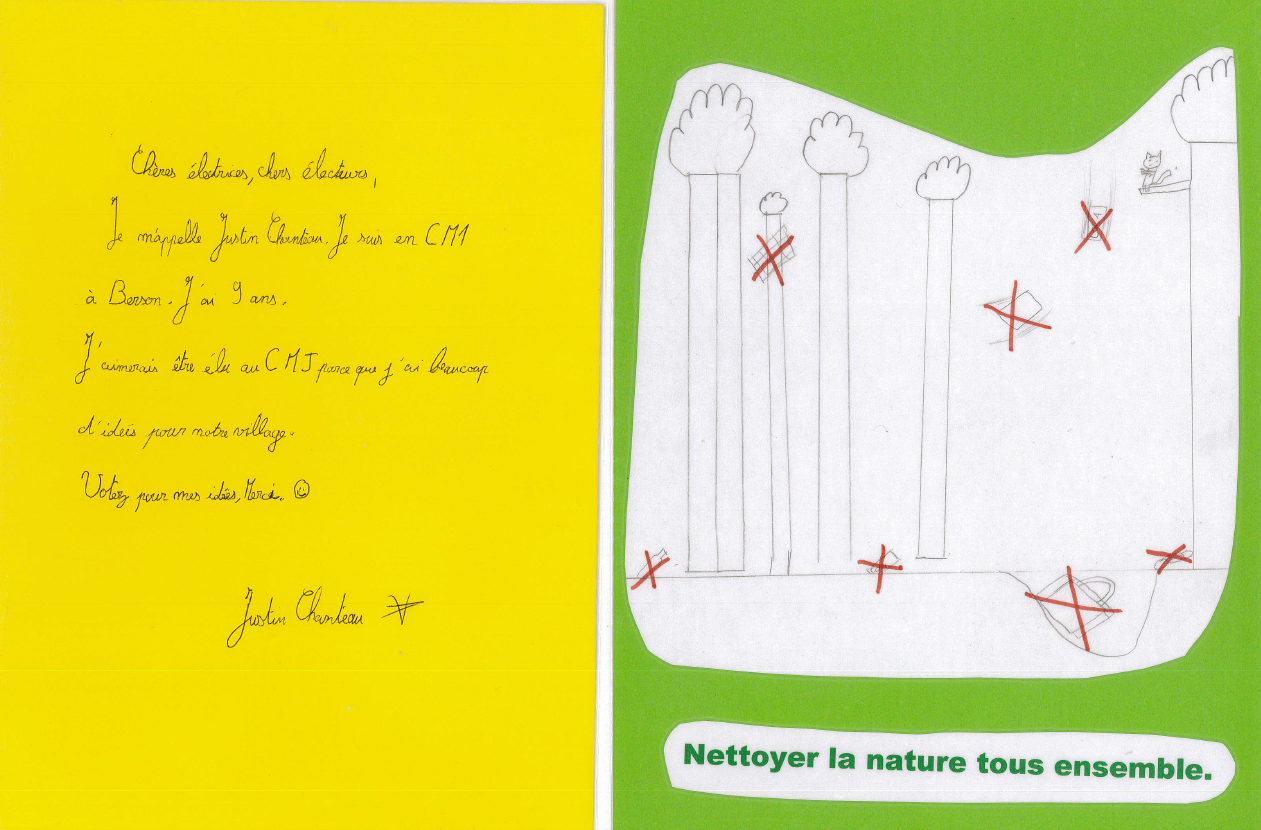 Chères électrices, chers électeurs,
Je m'appelle Justin Chanteau. Je suis en CM1
à Berson. J'ai 9 ans.
J'aimerais être élu au CMJ parce que j'ai beaucoup
d'idées pour notre village.
Votez pour mes idées, Merci. ☺
Justin Chanteau
Nettoyer la nature tous ensemble.